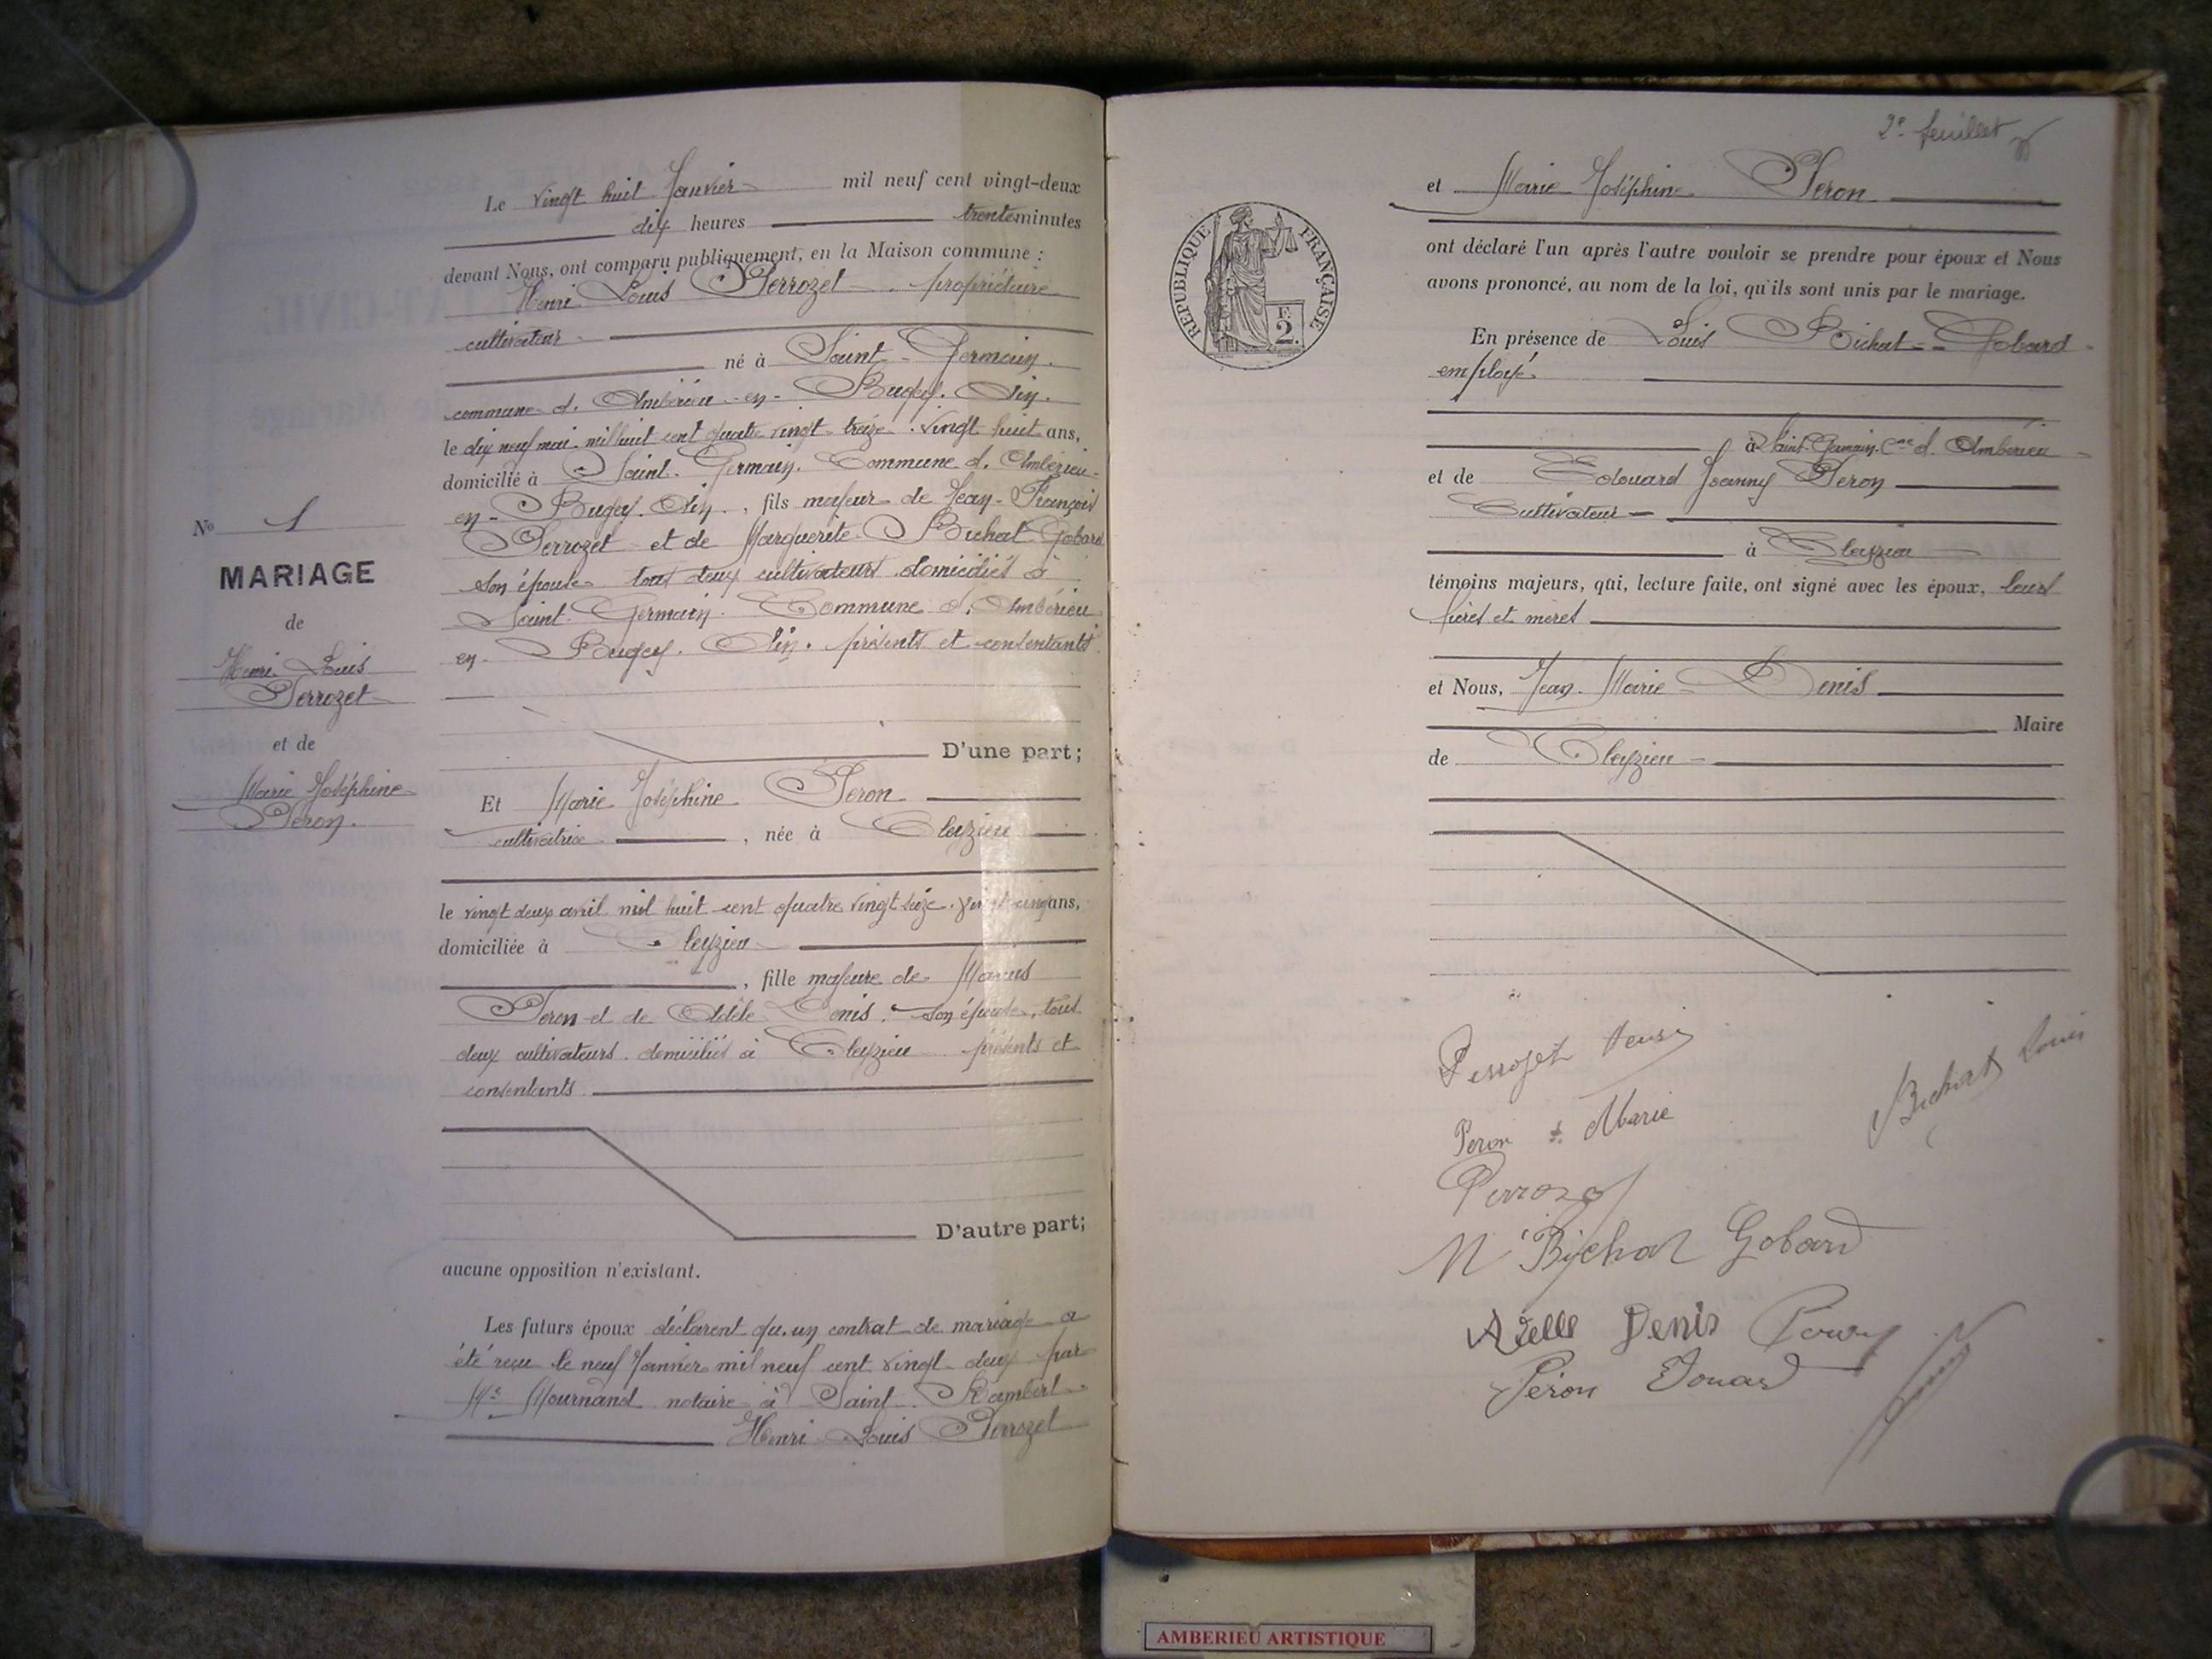 Le vingt huit Janvier mil neuf cent vingt-deux
dix heures trente minutes
devant Nous, ont comparu publiquement, en la Maison commune :
Henri Louis Perrozet propriétaire
cultivateur
né à Saint-Germain.
commune d'Ambérieu-en-Bugey. Ain.
le dix neuf mai mil huit cent quatre vingt treize. vingt huit ans,
domicilié à Saint-Germain. Commune d'Ambérieu-
en-Bugey. Ain., fils majeur de Jean-François
Perrozet et de Marguerite Bichat-Gobard
son épouse tous deux cultivateurs domiciliés à
Saint-Germain. Commune d'Ambérieu
en-Bugey. Ain. présents et consentants
D'une part;
Et Marie Joséphine Peron
cultivatrice, née à Cleyzieu
le vingt deux avril mil huit cent quatre vingt seize. vingt-cinq ans,
domiciliée à Cleyzieu
, fille majeure de Marius
Peron et de Adèle Denis. son épouse, tous
deux cultivateurs domiciliés à Cleyzieu présents et
consentants.
D'autre part;
aucune opposition n'existant.
Les futurs époux déclarent qu'un contrat de mariage a
été reçu le neuf Janvier mil neuf cent vingt-deux par
Me Mournand notaire à Saint-Rambert.
Henri Louis Perrozet
No 1
MARIAGE
de
Henri Louis
Perrozet
et de
Marie Joséphine
Peron.
2e feuillet
et Marie Joséphine Peron
RÉPUBLIQUE FRANÇAISE
F.
2.
ont déclaré l'un après l'autre vouloir se prendre pour époux et Nous
avons prononcé, au nom de la loi, qu'ils sont unis par le mariage.
En présence de Louis Bichat-Gobard
employé
à Saint-Germain. Cne d'Ambérieu
et de Edouard Joanny Peron
Cultivateur
à Cleyzieu
témoins majeurs, qui, lecture faite, ont signé avec les époux, leurs
pères et mères
et Nous, Jean-Marie Denis
Maire
de Cleyzieu
Perrozet Henri
Bichat Louis
Peron Marie
Perrozet
M Bichat Gobard
Adelle Denis Peron
Péron Edouard
AMBERIEU ARTISTIQUE